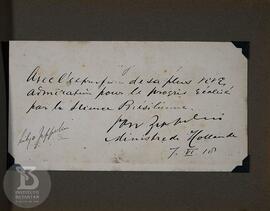 Avec l'expression de sa plus vive
admiration pour le progrès réalisé
par la Science Brésilienne.
van Zeppelin
Ministre de Hollande
7. VI. 18
INSTITUTO
BUTANTAN